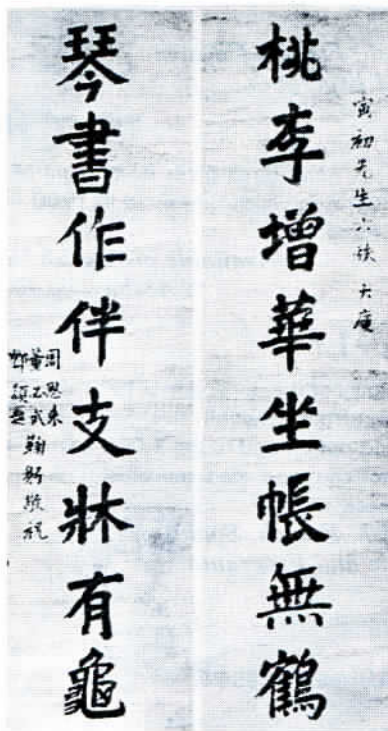 寅初先生六秩大慶
桃李增華坐帳無鶴
琴書作伴支牀有龜
周恩來
董必武
鄧穎超
鞠躬敬祝